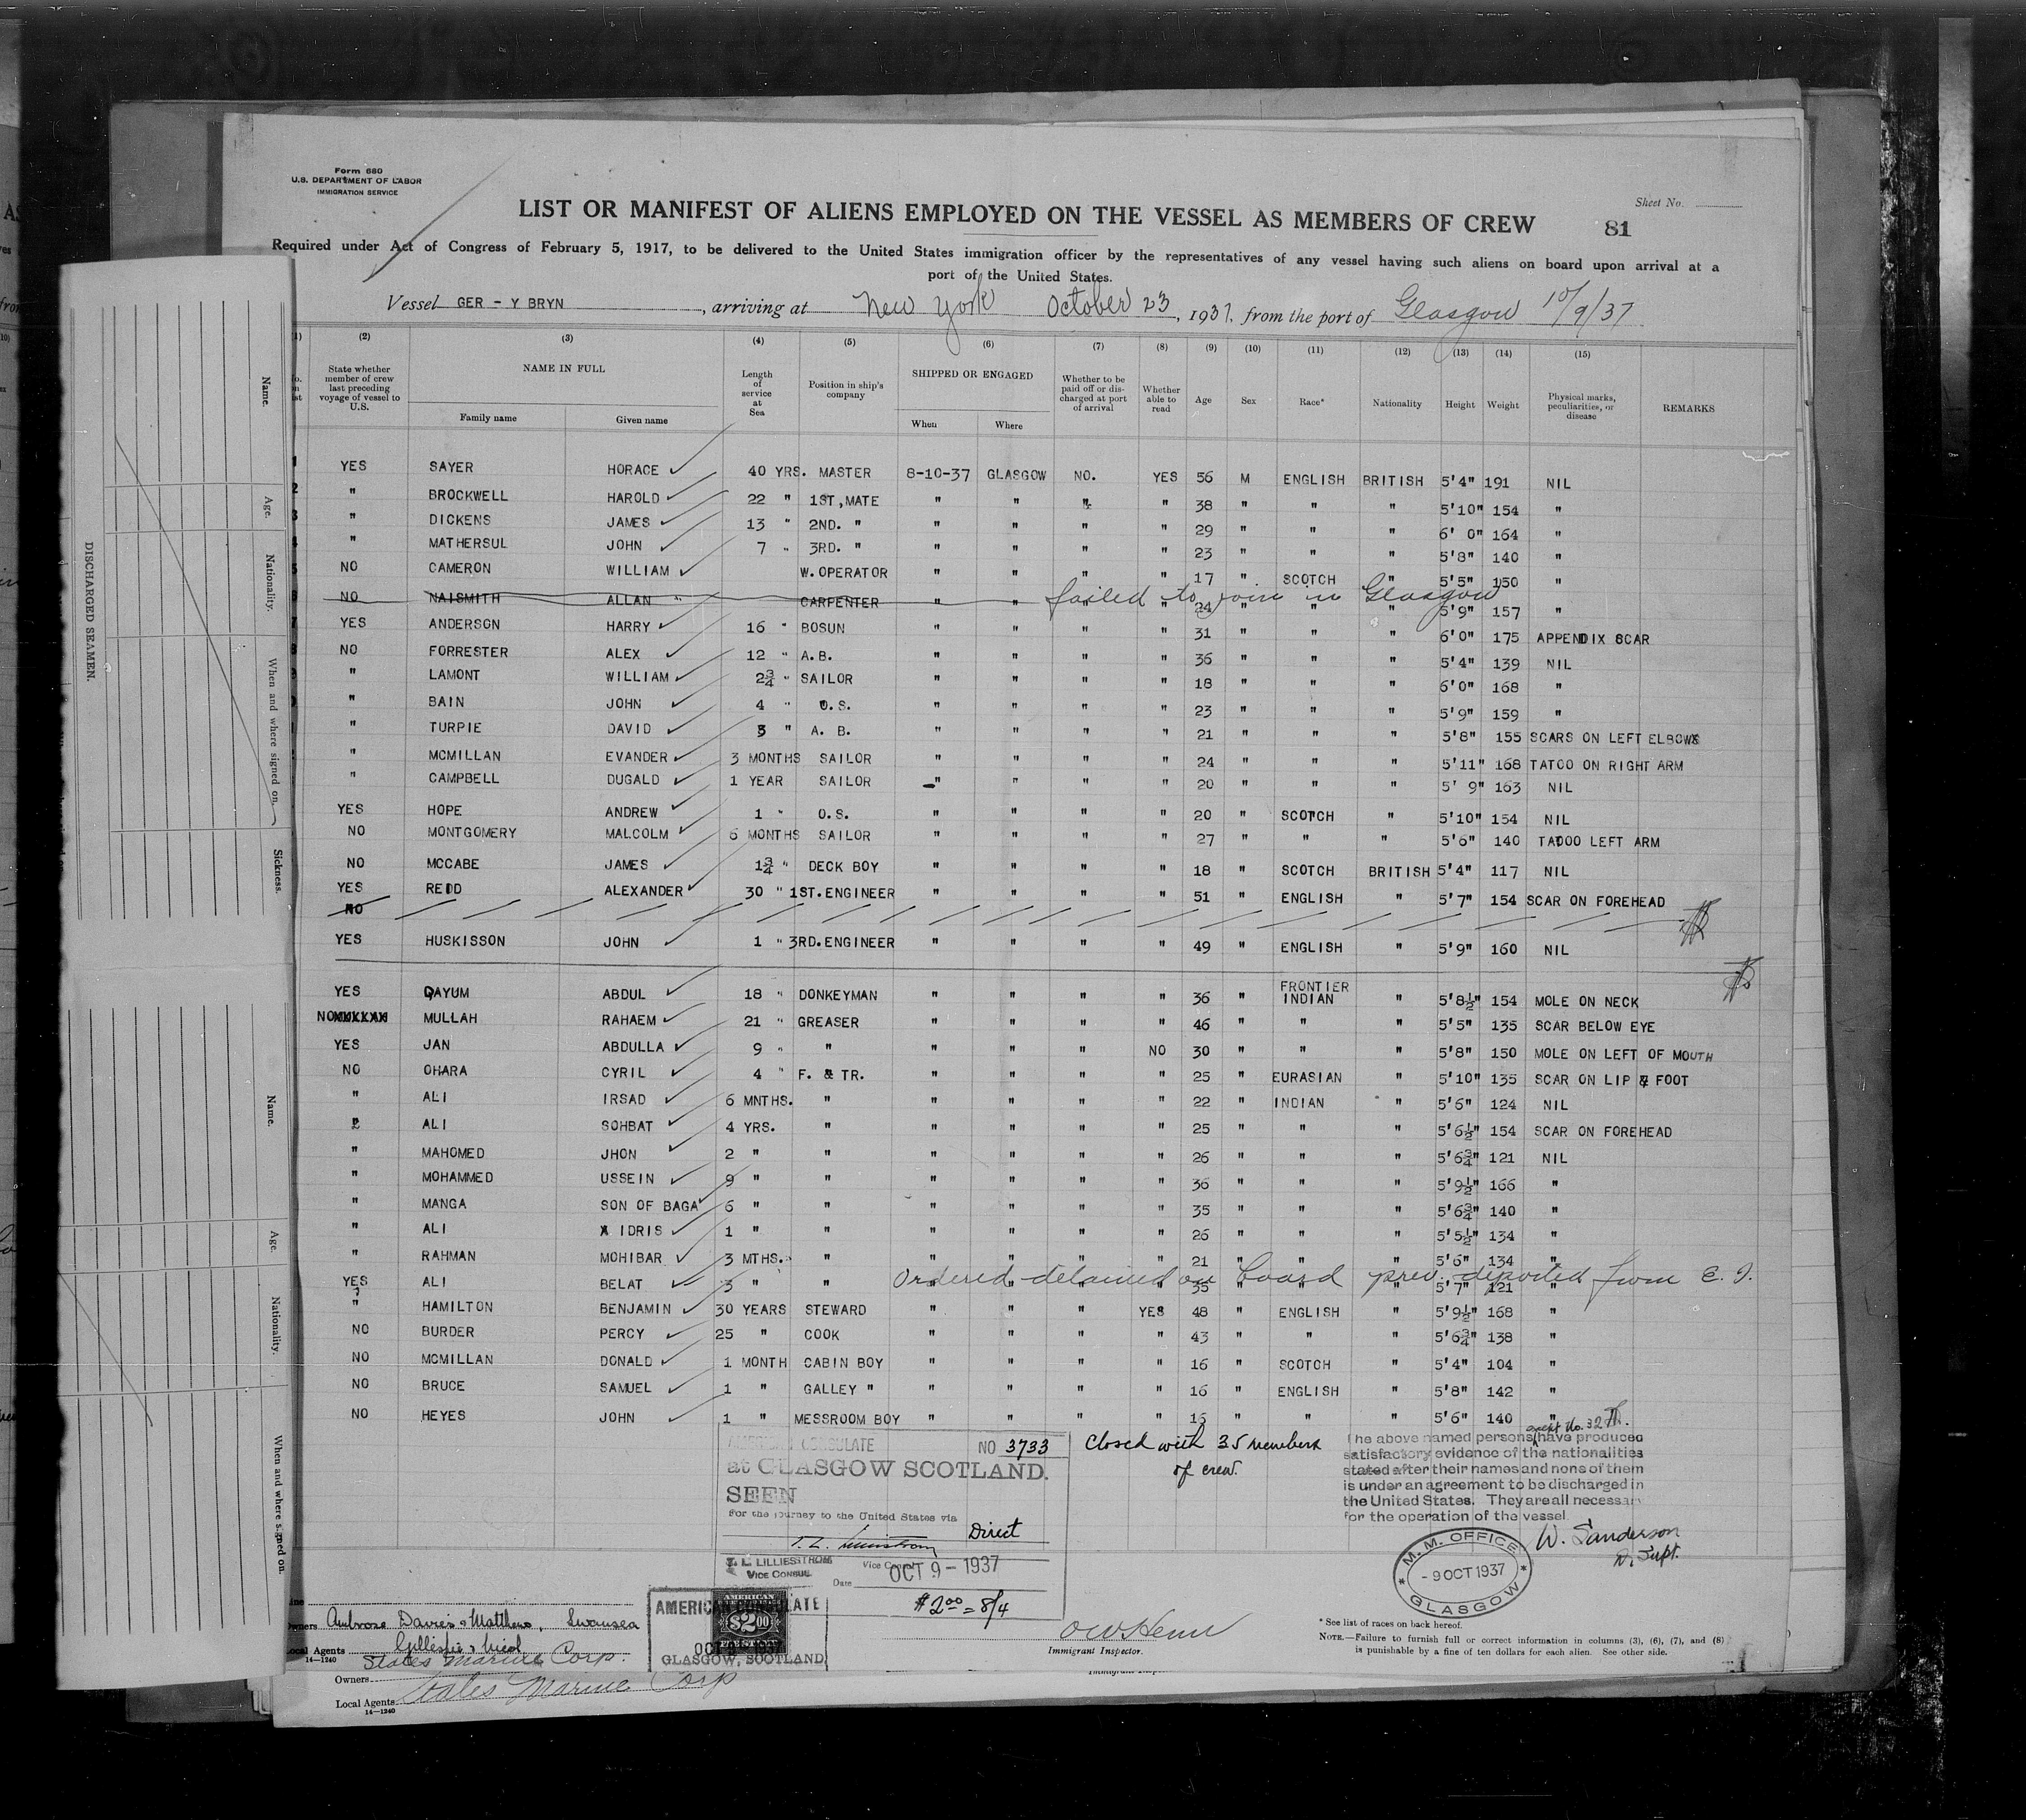 Form 680
U.S. DEPARTMENT OF LABOR
IMMIGRATION SERVICE
Sheet No.
LIST OR MANIFEST OF ALIENS EMPLOYED ON THE VESSEL AS MEMBERS OF CREW 81
Required under Act of Congress of February 5, 1917, to be delivered to the United States immigration officer by the representatives of any vessel having such aliens on board upon arrival at a
port of the United States.
Vessel GER - Y BRYN, arriving at New York October 23, 1937, from the port of Glasgow 10/9/37
(2) (3) (4) (5) (6) (7) (8) (9) (10) (11) (12) (13) (14) (15)
State whether member of crew last preceding voyage of vessel to U.S. NAME IN FULL Family name Given name Length of service at Sea Position in ship's company SHIPPED OR ENGAGED When Where Whether to be paid off or discharged at port of arrival Whether able to read Age Sex Race* Nationality Height Weight Physical marks, peculiarities, or disease REMARKS
1 YES SAYER HORACE 40 YRS. MASTER 8-10-37 GLASGOW NO. YES 56 M ENGLISH BRITISH 5'4" 191 NIL
2 " BROCKWELL HAROLD 22 " 1ST,MATE " " " " 38 " " " 5'10" 154 "
3 " DICKENS JAMES 13 " 2ND. " " " " " 29 " " " 6' 0" 164 "
" MATHERSUL JOHN 7 " 3RD. " " " " " 23 " " " 5'8" 140 "
NO CAMERON WILLIAM W.OPERATOR " " " " 17 " SCOTCH " 5'5" 150 "
NO NAISMITH ALLAN " CARPENTER " " " " 24 " " " 5'9" 157 "
failed to join in Glasgow
7 YES ANDERSON HARRY 16 " BOSUN " " " " 31 " " " 6'0" 175 APPENDIX SCAR
8 NO FORRESTER ALEX 12 " A.B. " " " " 36 " " " 5'4" 139 NIL
" LAMONT WILLIAM 2¾ " SAILOR " " " " 18 " " " 6'0" 168 "
" BAIN JOHN 4 " O.S. " " " " 23 " " " 5'9" 159 "
" TURPIE DAVID 3 " A. B. " " " " 21 " " " 5'8" 155 SCARS ON LEFT ELBOW
" MCMILLAN EVANDER 3 MONTHS SAILOR " " " " 24 " " " 5'11" 168 TATOO ON RIGHT ARM
" CAMPBELL DUGALD 1 YEAR SAILOR " " " " 20 " " " 5' 9" 163 NIL
YES HOPE ANDREW 1 " O.S. " " " " 20 " SCOTCH " 5'10" 154 NIL
NO MONTGOMERY MALCOLM 6 MONTHS SAILOR " " " " 27 " " " 5'6" 140 TADOO LEFT ARM
NO MCCABE JAMES 1¾ " DECK BOY " " " " 18 " SCOTCH BRITISH 5'4" 117 NIL
YES REID ALEXANDER 30 " 1ST.ENGINEER " " " " 51 " ENGLISH " 5'7" 154 SCAR ON FOREHEAD
NO
YES HUSKISSON JOHN 1 " 3RD.ENGINEER " " " " 49 " ENGLISH " 5'9" 160 NIL
YES QAYUM ABDUL 18 " DONKEYMAN " " " " 36 " FRONTIER INDIAN " 5'8½" 154 MOLE ON NECK
NO MULLAH RAHAEM 21 " GREASER " " " " 46 " " " 5'5" 135 SCAR BELOW EYE
YES JAN ABDULLA 9 " " " " " NO 30 " " " 5'8" 150 MOLE ON LEFT OF MOUTH
NO OHARA CYRIL 4 " F. & TR. " " " " 25 " EURASIAN " 5'10" 135 SCAR ON LIP & FOOT
" ALI IRSAD 6 MNTHS. " " " " " 22 " INDIAN " 5'6" 124 NIL
" ALI SOHBAT 4 YRS. " " " " " 25 " " " 5'6½" 154 SCAR ON FOREHEAD
" MAHOMED JHON 2 " " " " " " 26 " " " 5'6¾" 121 NIL
" MOHAMMED USSEIN 9 " " " " " " 36 " " " 5'9½" 166 "
" MANGA SON OF BAGA 6 " " " " " " 35 " " " 5'6¾" 140 "
" ALI IDRIS 1 " " " " " " 26 " " " 5'5½" 134 "
" RAHMAN MOHIBAR 3 MTHS. " " " " " 21 " " " 5'6" 134 "
YES ALI BELAT 3 " " " " " " 35 " " " 5'7" 121 "
Ordered detained on board prev. deported from E. I.
" HAMILTON BENJAMIN 30 YEARS STEWARD " " " YES 48 " ENGLISH " 5'9½" 168 "
NO BURDER PERCY 25 " COOK " " " " 43 " " " 5'6¾" 138 "
NO MCMILLAN DONALD 1 MONTH CABIN BOY " " " " 16 " SCOTCH " 5'4" 104 "
NO BRUCE SAMUEL 1 " GALLEY " " " " " 16 " ENGLISH " 5'8" 142 "
NO HEYES JOHN 1 " MESSROOM BOY " " " " 16 " " " 5'6" 140 "
AMERICAN CONSULATE NO 3733
at GLASGOW SCOTLAND.
SEEN
For the journey to the United States via Direct
T. L. LILLIESTROM
VICE CONSUL
Vice Consul
Date OCT 9 - 1937
$2.00 = 8/4
Closed with 35 members
of crew.
except No. 32
The above named persons have produced
satisfactory evidence of the nationalities
stated after their names and none of them
is under an agreement to be discharged in
the United States. They are all necessary
for the operation of the vessel.
W. Sanderson
D. Supt.
M. M. OFFICE
- 9 OCT 1937
GLASGOW
AMERICAN CONSULATE
AMERICAN
$2.00
GLASGOW, SCOTLAND
Immigrant Inspector.
* See list of races on back hereof.
NOTE.—Failure to furnish full or correct information in columns (3), (6), (7), and (8)
is punishable by a fine of ten dollars for each alien. See other side.
Owners Ambrose Davies & Matthews, Swansea
Local Agents Gillespie & Nicol
14—1240
States Marine Corp.
Owners
Local Agents States Marine Corp
14—1240
DISCHARGED SEAMEN.
Name.
Age.
Nationality.
When and where signed on.
Sickness.
Name.
Age.
Nationality.
When and where signed on.